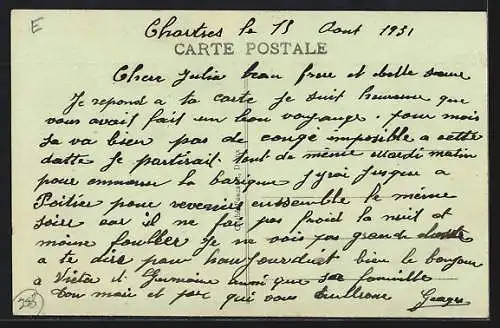 E
Chartres le 15 Aout 1931
CARTE POSTALE
Cher Julia beau frere et belle soeur
Je repond a ta carte je suit heureuse que
vous avait fait un bon voyange. pour mois
sa va bien pas de congé imposible a cette
datte Je partirait tout de même mardi matin
pour emmener la barique J'yrai jusque a
Poitier pour revenir ensemble le même
soire car il ne fai pas froid la nuit et
même fouller Je ne vois pas grande
a te dire pour haujourduit bien le bonjour
a Victor et Germaine ainsi que sa famille
ton mari et par qui vous Georges